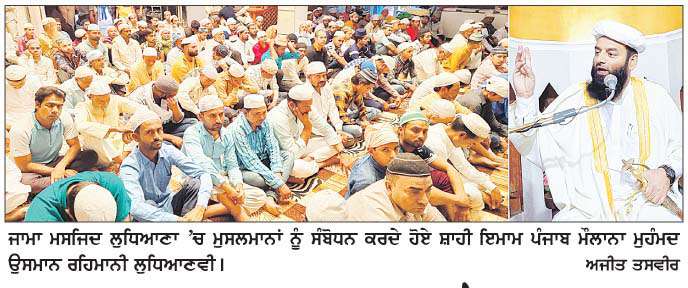 ਜਾਮਾ ਮਸਜਿਦ ਲੁਧਿਆਣਾ 'ਚ ਮੁਸਲਮਾਨਾਂ ਨੂੰ ਸੰਬੋਧਨ ਕਰਦੇ ਹੋਏ ਸ਼ਾਹੀ ਇਮਾਮ ਪੰਜਾਬ ਮੌਲਾਨਾ ਮੁਹੰਮਦ
ਉਸਮਾਨ ਰਹਿਮਾਨੀ ਲੁਧਿਆਣਵੀ। ਅਜੀਤ ਤਸਵੀਰ